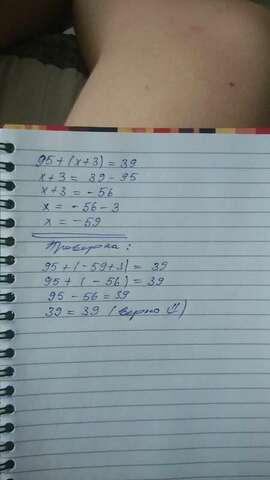 95+(x+3)=39
x+3 = 39-95
x+3 = -56
x = -56-3
x = -59
Проверка:
95+(-59+3) = 39
95+(-56) = 39
95-56=39
39=39 (верно